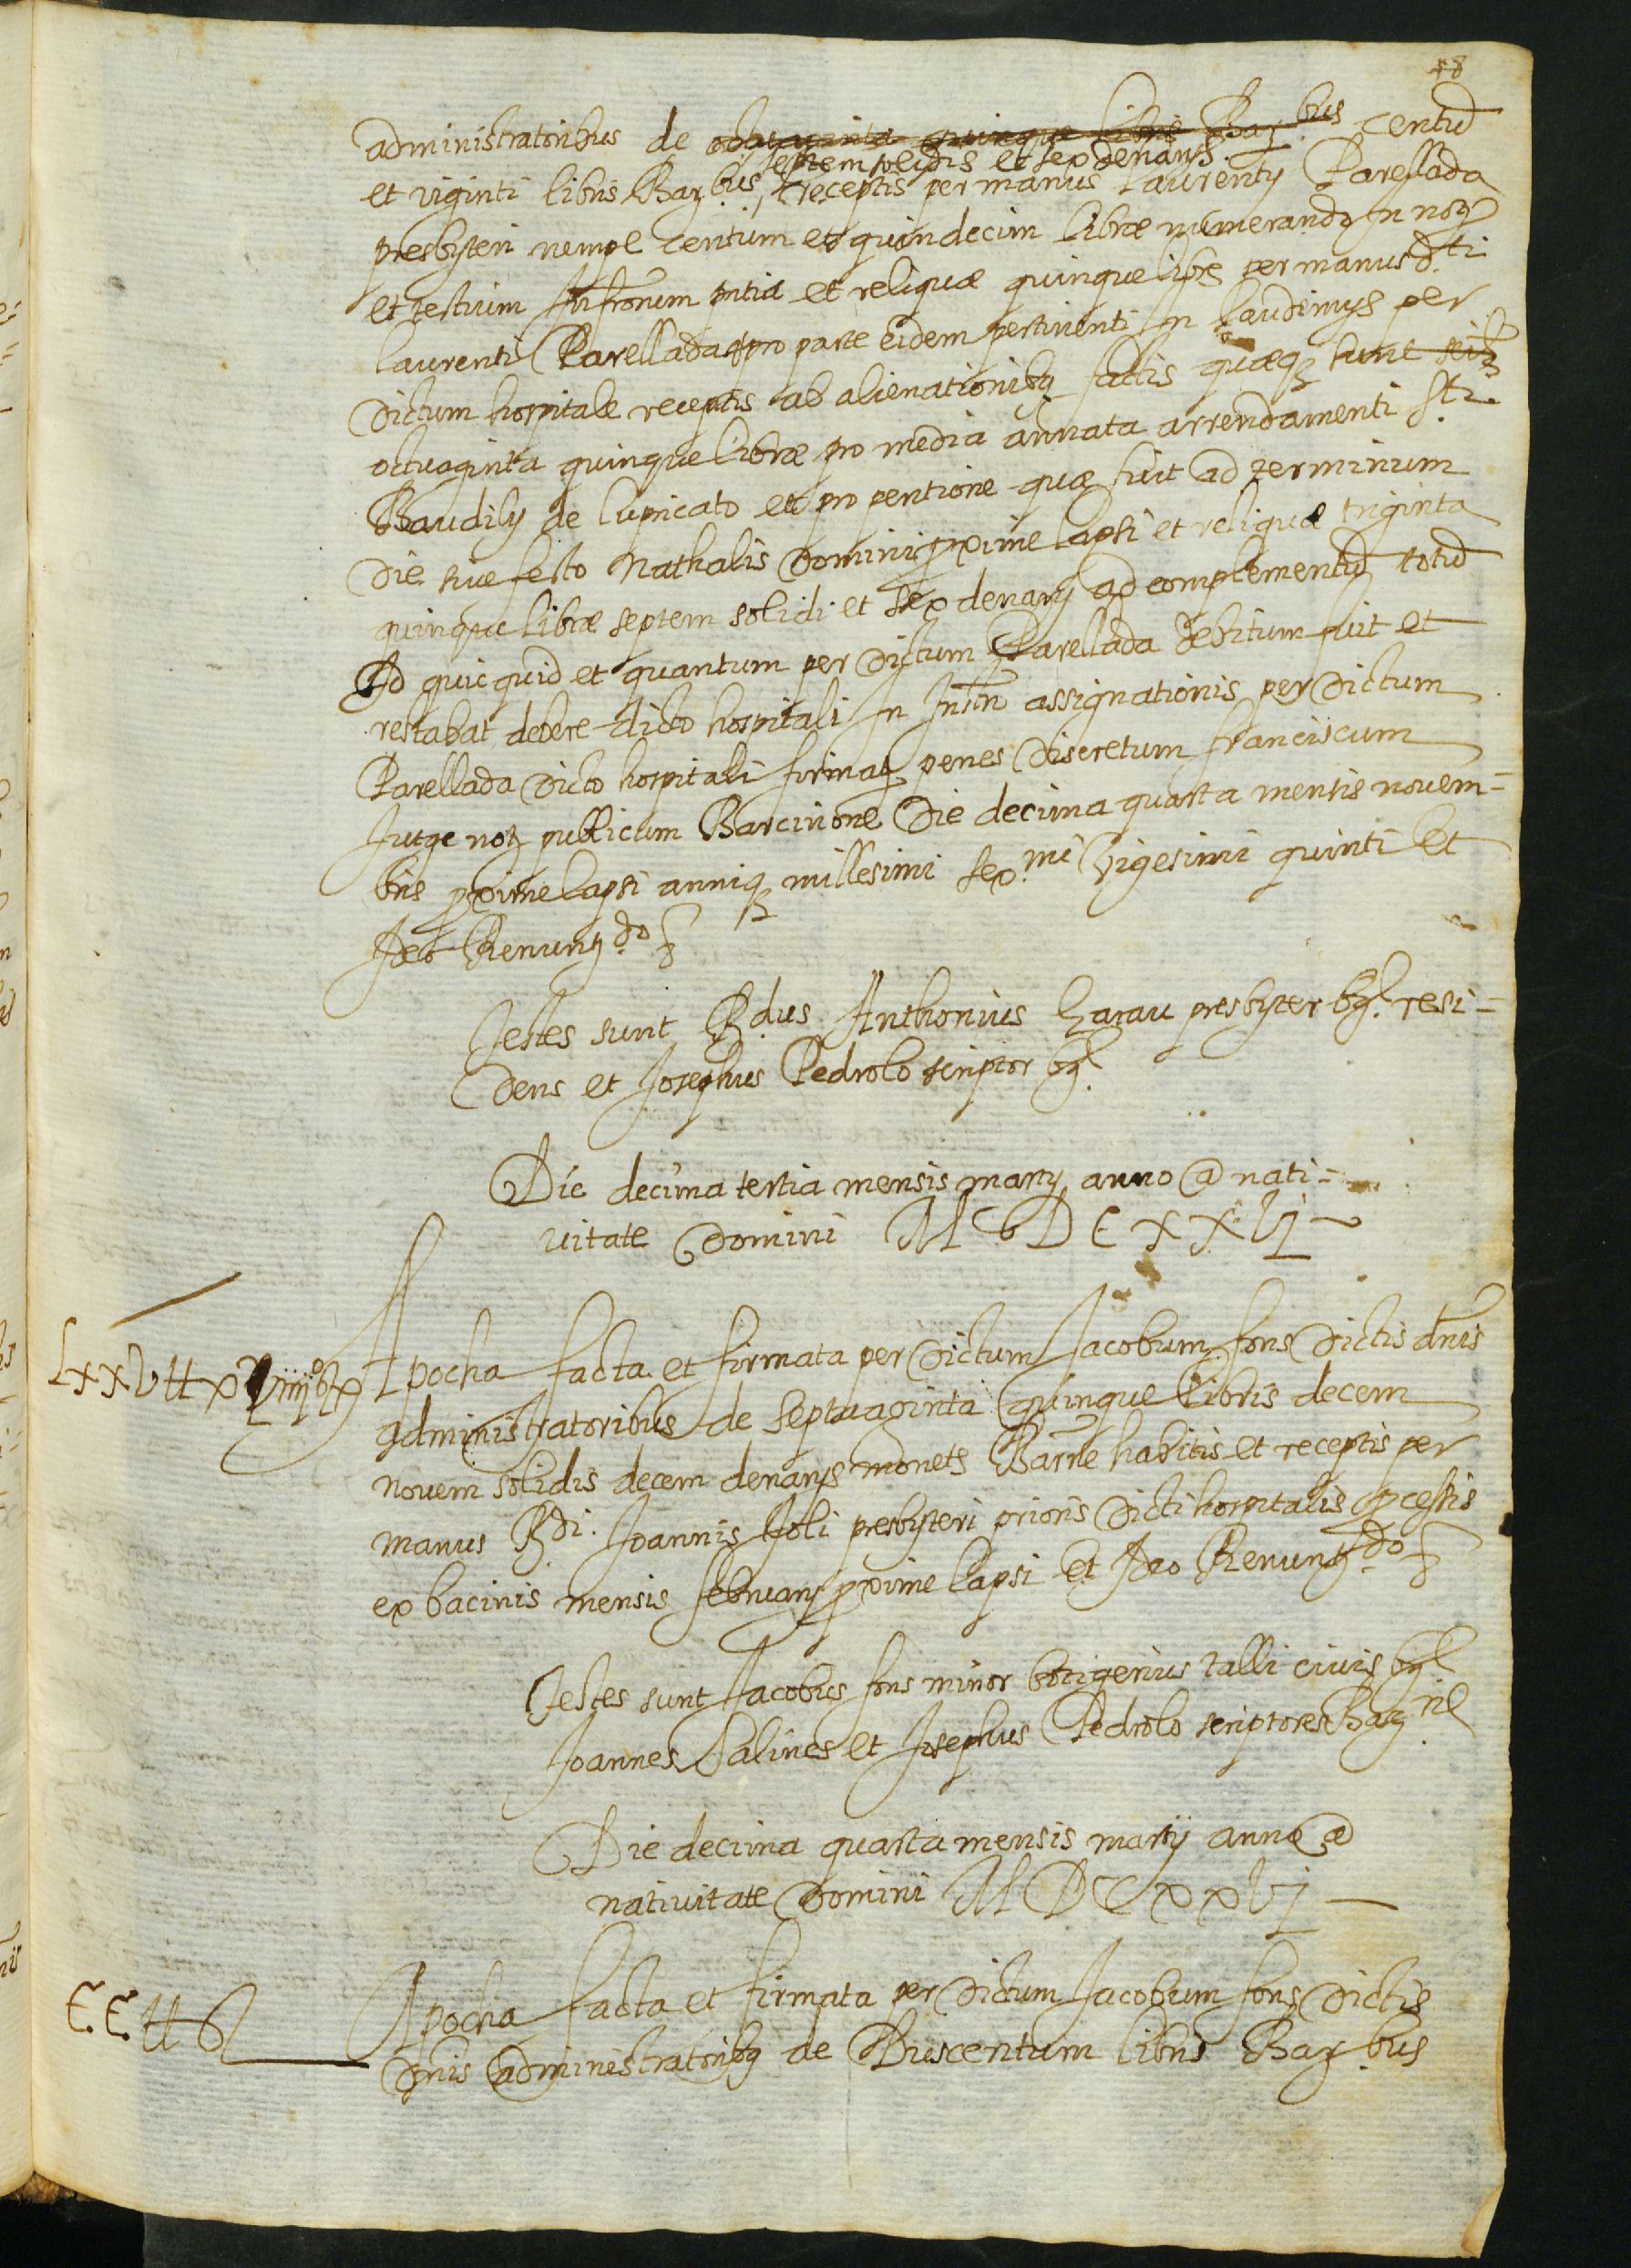 58
administratoribus de octuaginta quinque libris Barbus centũ
septem solidis et sex denarijs
et viginti libris Barbus, receptis per manus laurentij Parellada
presbyteri nempe centum et quindecim libræ numerando in notȝ
et testium infrõrum pñtia et reliquæ quinque libræ per manus dti
laurenti Parellada pro parte eidem pertinenti in laudimijs per
dictum hospitale receptis ab alienationibȝ factis quæqȝ sunt
octuaginta quinque libræ pro media annata arrendamenti sti.
Baudilij de lupricato et pro pentione quæ fuit ad terminum
die sive festo Nathalis Domini pxime lapsi et reliquæ triginta
quinque libræ septem solidi et sex denarij ad complementũ totũ
Id quicquid et quantum per dictum Parellada debitum fuit et
restabat debere dicto hospitali in Instr̃ assignationis per dictum
Parellada dicto hospitali firmatȝ penes discretum franciscum
Jutge notȝ publicum Barcinone die decima quarta mensis novem=
bris pxime lapsi anniqȝ millesimi sex.mi vigesimi quinti et
Ideo Renuntȝdo ȝ
Testes sunt Rdus Anthonius Zarau presbyter bȝ. resi=
dens et Josephus Pedrolo scriptor bȝ.
Die decima tertia mensis martij anno @ nati=
vitate Domini M DC XXVj
LXXV tt XVIIII ß X
Apocha facta et firmata per dictum Jacobum fons dictis dñis
administratoribus de septuaginta quinque libris decem
novem solidis decem denarijs monetȝ Barñe habitis et receptis per
manus Rdi. Joannis Joli presbyteri prioris dicti hospitalis pcessis
ex bacinis mensis februarij pxime lapsi et Ideo Renuntȝdo ȝ
Testes sunt Jacobus fons minor botigerius talli civis bȝ
Joannes Salines et Josephus Pedrolo scriptores Barȝne
Die decima quarta mensis martij anno @
nativitate Domini M DC XXVj
CC tt ß
Apocha facta et firmata per dictum Jacobum fons dictis
dñis administratoribȝ de Duscentum libris Barȝbus